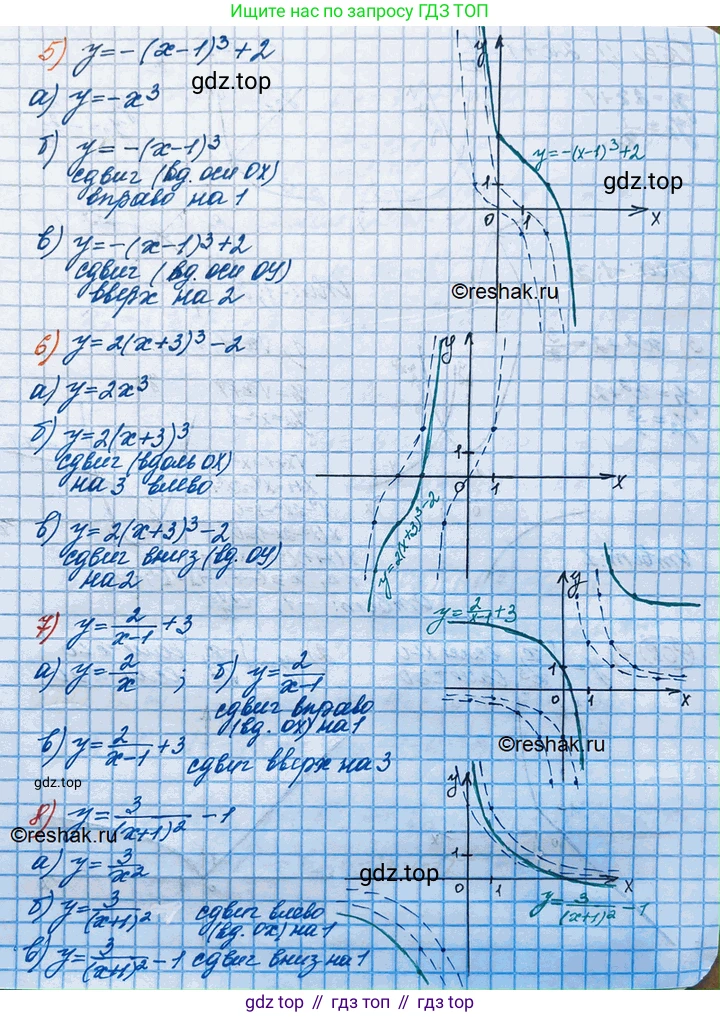 Ищите нас по запросу ГДЗ ТОП
5) y=-(x-1)³+2
gdz.top
а) y=-x³
б) y=-(x-1)³
сдвиг (вд. оси OX)
вправо на 1
в) y=-(x-1)³+2
сдвиг (вд. оси OY)
вверх на 2
y
y=-(x-1)³+2
gdz.top
1
0 1 x
©reshak.ru
6) y=2(x+3)³-2
а) y=2x³
б) y=2(x+3)³
сдвиг (вдоль OX)
на 3 влево
в) y=2(x+3)³-2
сдвиг вниз (вд. OY)
на 2
y
1
0 1 x
y=2(x+3)³-2
7) y=2/(x-1)+3
а) y=2/x ; б) y=2/(x-1)
сдвиг вправо
(вд. OX) на 1
в) y=2/(x-1)+3
сдвиг вверх на 3
y
y=2/(x-1)+3
1
0 1 x
©reshak.ru
gdz.top
8) y=3/(x+1)²-1
©reshak.ru
а) y=3/x²
б) y=3/(x+1)² сдвиг влево
(вд. OX) на 1
в) y=3/(x+1)²-1 сдвиг вниз на 1
y
1
gdz.top
0 1 x
y=3/(x+1)²-1
gdz.top // гдз топ // gdz.top